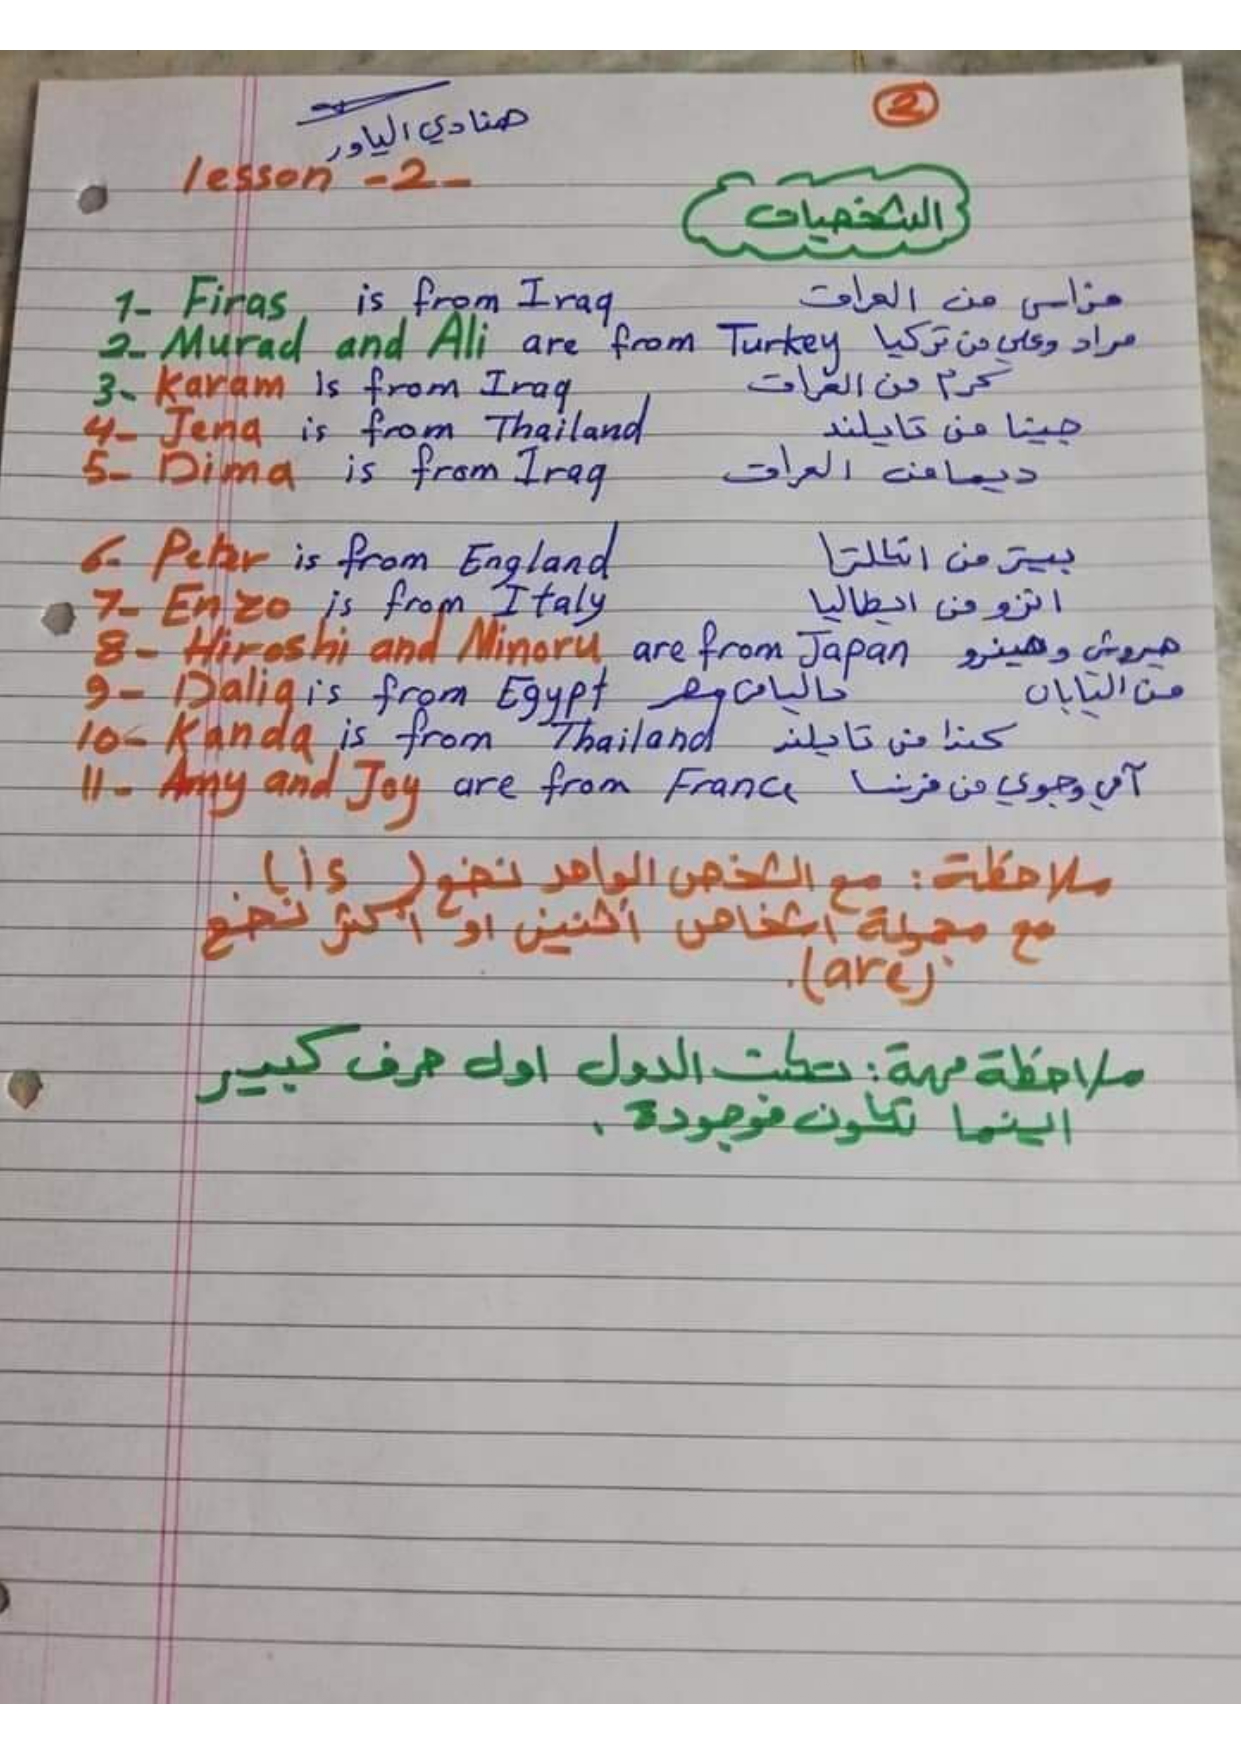 2
هنادي الياور
lesson -2-
الشخصيات
1- Firas is from Iraq فراس من العراق
2- Murad and Ali are from Turkey مراد وعلي من تركيا
3- Karam is from Iraq كرم من العراق
4- Jena is from Thailand جينا من تايلند
5- Dima is from Iraq ديما من العراق
6- Peter is from England بيتر من انكلترا
7- Enzo is from Italy انزو من ايطاليا
8- Hiroshi and Minoru are from Japan هيروش وهينرو
9- Dalia is from Egypt داليا من مصر من اليابان
10- Kanda is from Thailand كندا من تايلند
11- Amy and Joy are from France آمي وجوي من فرنسا
ملاحظة: مع الشخص الواحد نضع (is).
مع مجموعة اشخاص أثنين او أكثر نضع
(are).
ملاحظة مهمة: تكتب الدول اول حرف كبير
اينما تكون موجودة.